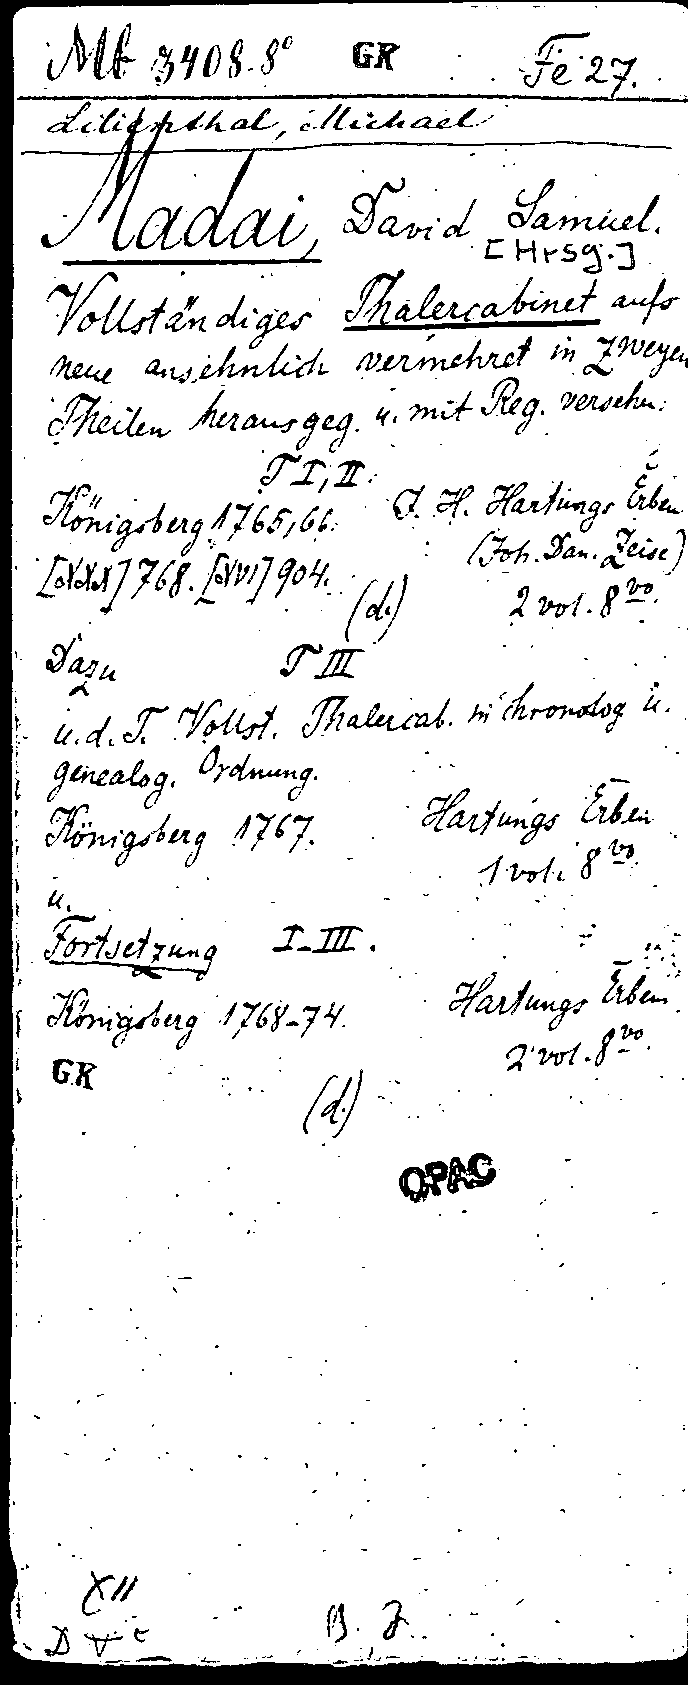 Mb 3408.8° GR Fe 27.
Lilienthal, Michael
Madai, David Samuel.
[Hrsg.]
Vollständiges Thalercabinet aufs
neue ansehnlich vermehret in zweyen
Theilen herausgeg. u. mit Reg. versehn.
T I, II.
Königsberg 1765,66. J. H. Hartungs Erben
(Joh. Dan. Zeise)
[XXX] 768. [XVI] 904.
(d.) 2 vol. 8vo.
Dazu T III
u. d. T. Vollst. Thalercab. in chronolog u.
genealog. Ordnung.
Königsberg 1767. Hartungs Erben
1 vol. 8vo.
u.
Fortsetzung I-III.
Königsberg 1768-74. Hartungs Erben
2 vol. 8vo.
GR
(d.)
OPAC
XII
B. J.